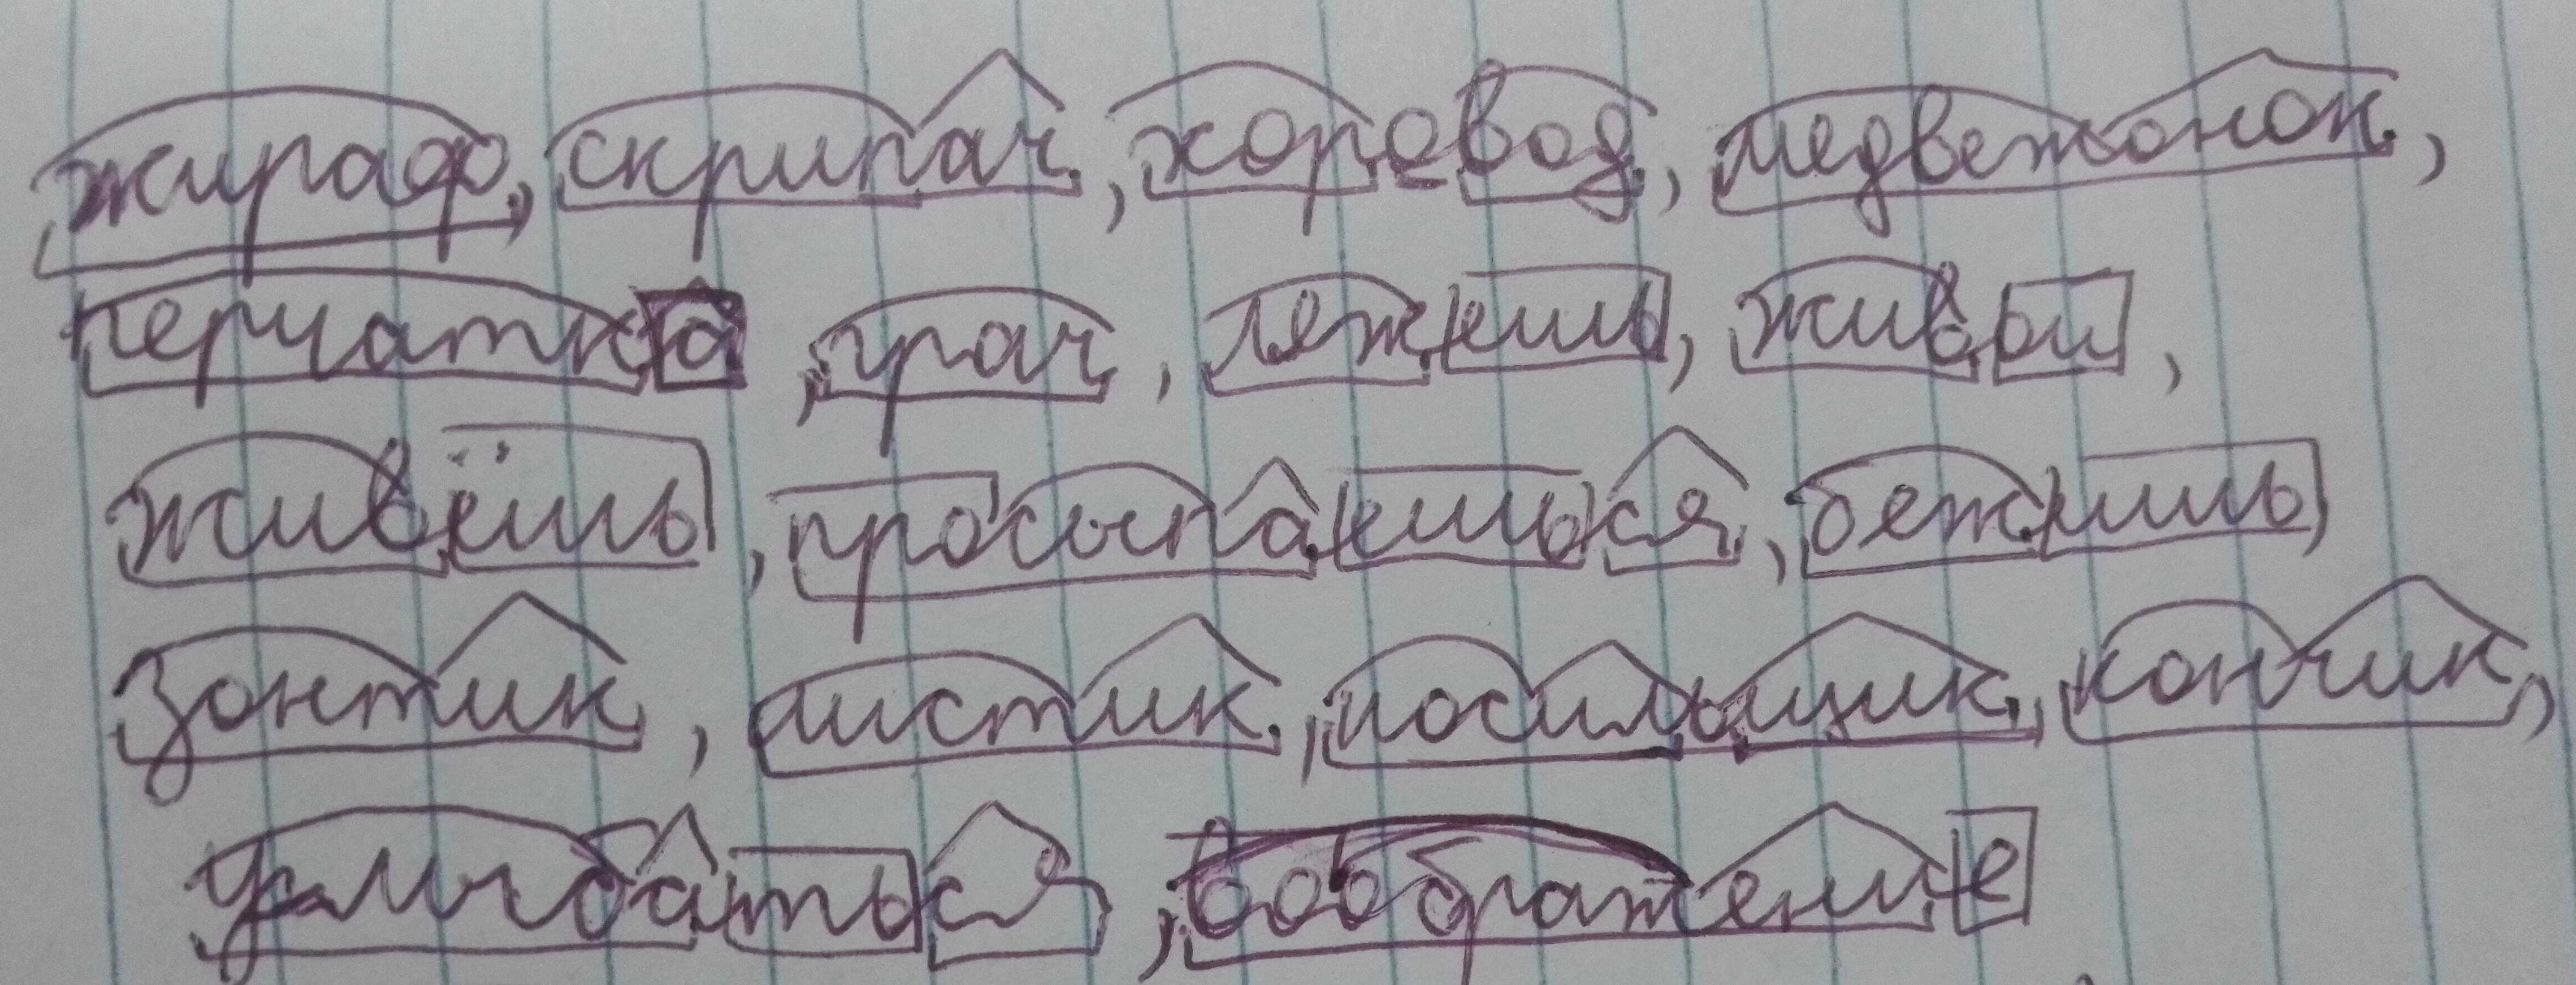 жираф, скрипач, хоровод, медвежонок,
перчатка, грач, лежишь, живой,
живёшь, просыпаешься, бежишь,
зонтик, листик, носильщик, кончик,
улыбаться, воображение